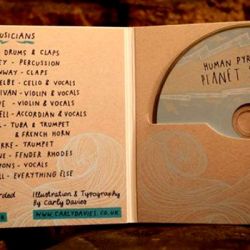 USICIANS
DRUMS & CLAPS
EY - PERCUSSION
NWAY - CLAPS
ELBE - CELLO & VOCALS
IVAN - VIOLIN & VOCALS
- VIOLIN & VOCALS
ELL - ACCORDIAN & VOCALS
R - TUBA & TRUMPET
& FRENCH HORN
RKE - TRUMPET
NE - FENDER RHODES
YONS - VOCALS
LL - EVERYTHING ELSE
rded
Illustration & Typography
By Carly Davies
WWW.CARLYDAVIES.CO.UK
HUMAN PYR
PLANET